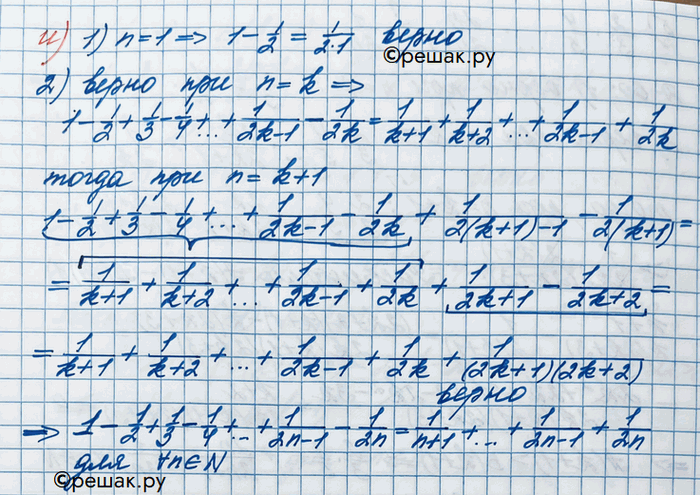 4) 1) n=1 => 1-1/2 = 1/(2·1) верно
©решак.ру
2) верно при n=k =>
1-1/2+1/3-1/4+...+1/(2k-1)-1/(2k)=1/(k+1)+1/(k+2)+...+1/(2k-1)+1/(2k)
тогда при n=k+1
1-1/2+1/3-1/4+...+1/(2k-1)-1/(2k)+1/(2(k+1)-1)-1/(2(k+1))=
=1/(k+1)+1/(k+2)+...+1/(2k-1)+1/(2k)+1/(2k+1)-1/(2k+2)=
=1/(k+1)+1/(k+2)+...+1/(2k-1)+1/(2k)+1/((2k+1)(2k+2))
верно
=> 1-1/2+1/3-1/4+...+1/(2n-1)-1/(2n)=1/(n+1)+...+1/(2n-1)+1/(2n)
для ∀n∈N
©решак.ру